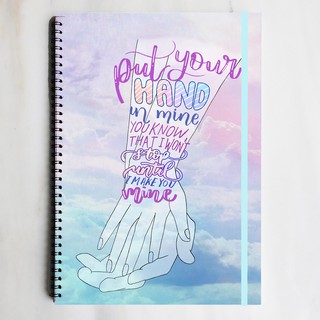 put your
HAND
in mine
YOU KNOW
THAT I WON'T
stop
until
I MAKE YOU
mine